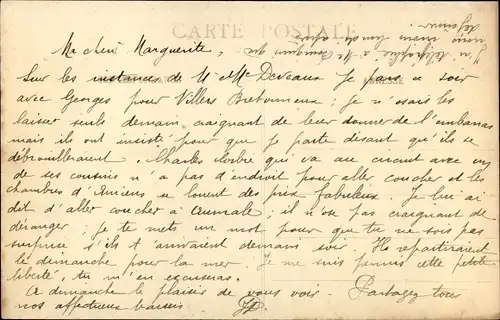 CARTE POSTALE
J'ai télégraphié à M. que
nous irions lundi après
déjeuner.
Ma chère Marguerite,
Sur les instances de M et Mme Deveaux je pars ce soir
avec Georges pour Villers Bretonneux ; je n'osais les
laisser seuls demain craignant de leur donner de l'embarras
mais ils ont insisté pour que je parte disant qu'ils se
débrouilleraient. Charles qui va au circuit avec un
de ses cousins n'a pas d'endroit pour aller coucher et les
chambres d'Amiens se louent des prix fabuleux. Je lui ai
dit d'aller coucher à Aumale ; il n'ose pas craignant de
déranger ; je te mets un mot pour que tu ne sois pas
surprise s'ils t'arrivaient demain soir. Ils repartiraient
le dimanche pour la mer. Je me suis permis cette petite
liberté, tu m'en excuseras.
A dimanche le plaisir de vous voir. Partagez tous
nos affectueux baisers